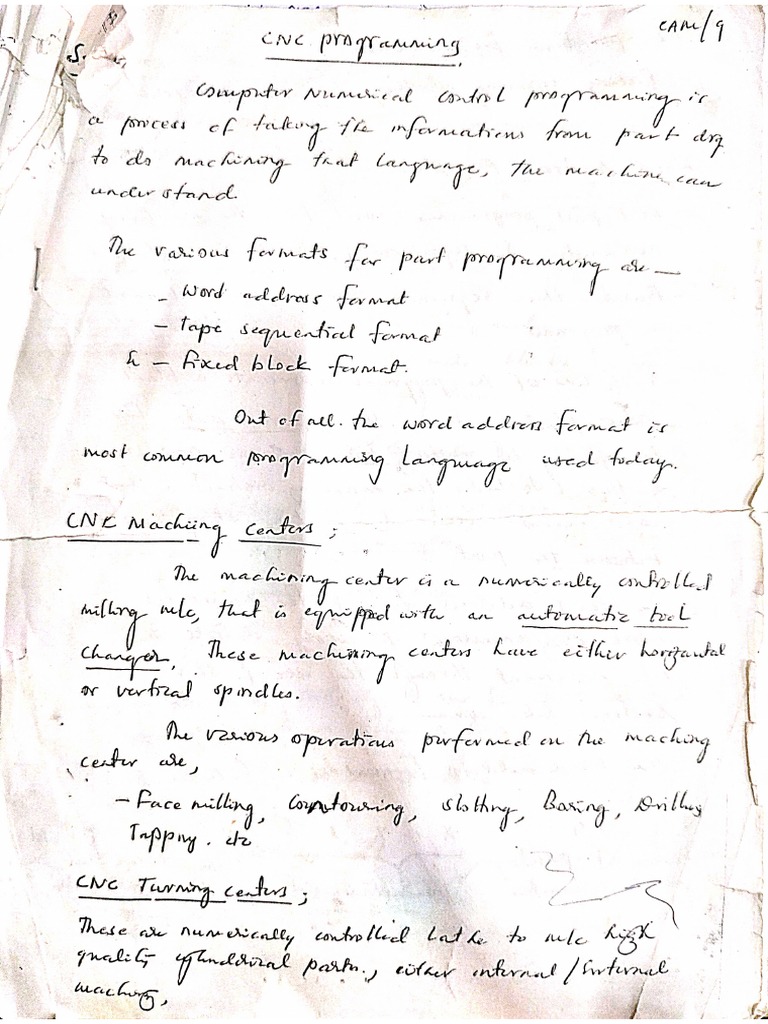 CAM/9
CNC programming
Computer Numerical control programming is
a process of taking the informations from part drg
to do machining that language, the machine can
understand.
The various formats for part programming are —
- Word address format
- Tape sequential format
& - Fixed block format.
Out of all. the word address format is
most common programming language used today.
CNC Machiing centers ;
The machining center is a numerically controlled
milling m/c, that is equipped with an automatic tool
changer. These machining centers have either horizontal
or vertical spindles.
The various operations performed on the maching
center are,
- Face milling, Countouring, slotting, Boring, Drilling
Tapping. etc
CNC Turning centers ;
These are numerically controlled Lathe to m/c high
quality cylindrical parts., either internal /
maching,